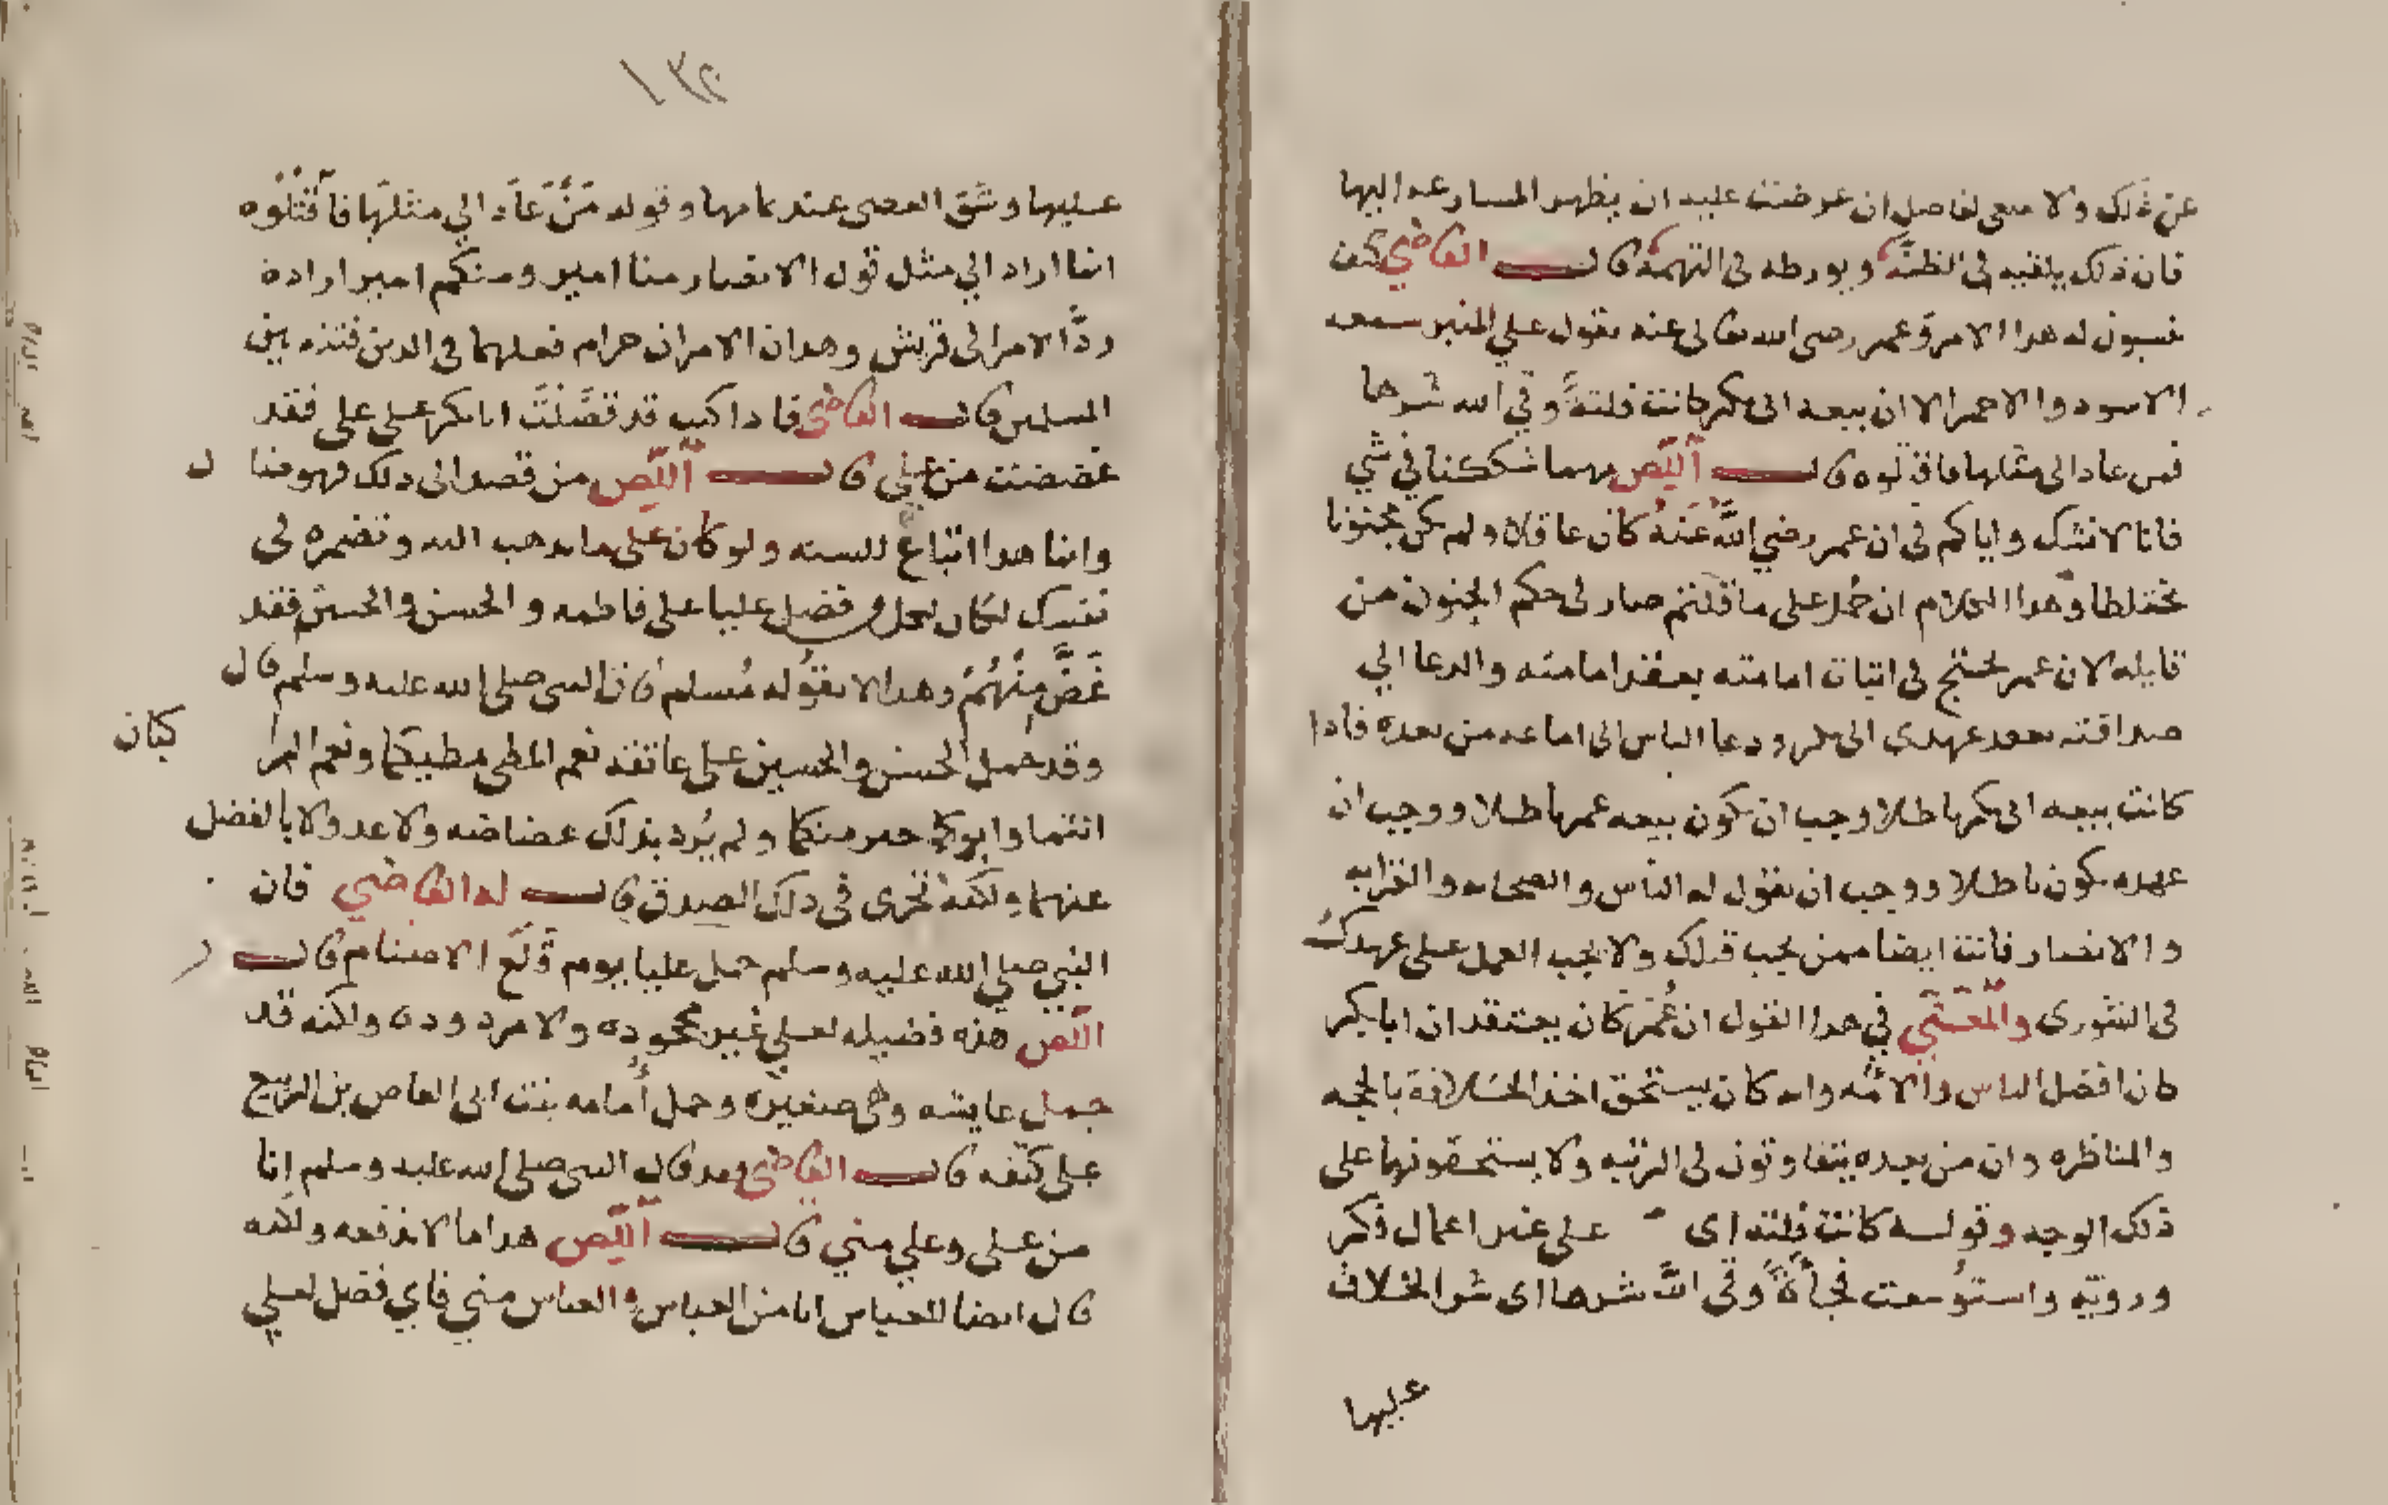 عن ذلك ولا معنى لفاصل ان عرضت عليه ان يظهر المسارعه اليها
فان ذلك يلقيه في الظنه ويورطه في التهمة قال القاضي كيف
تنسبون له هدا الامر وعمر رضى الله تعالى عنه يقول علي المنبر سمعه
الاسود والاحمر الا ان بيعه ابى بكر كانت فلتة وقي الله شرها
فمن عاد الى مثلها فاقتلوه قال اللص مهما شككنا في شي
فانا لا نشك واياكم في ان عمر رضي الله عنه كان عاقلا ولم يكن مجنونا
مختلطا وهدا الكلام ان حمل على ما قلتم صار في حكم الجنون من
قايله لان عمر يحتج في اثبات امامته بعقد امامته والدعا الي
صداقته بعهد عهدى ابى بكر ودعا الناس الى اماعه من بعده فادا
كانت بيعه ابى بكر باطلا وجب ان تكون بيعه عمر باطلا ووجب ان
عهده يكون باطلا ووجب ان يقول له الناس والصحابه والقرابه
والانصار فانت ايضا ممن يجب قتلك ولا يجب العمل على عهدك
في الشورى والمعنى في هدا القول ان عمر كان يعتقد ان ابا بكر
كان افضل الناس والامه وانه كان يستحق اخذ الخلافة بالحجه
والمناظره وان من بعده يتفاوتون في الرتبه ولا يستحقونها على
ذلك الوجه وقوله كانت فلته اى على غير اعمال فكر
ورويته واستوسعت فجأة وقى الله شرها اى شر الخلاف
عليها
١٣٤
عليها وشق العصى عند تمامها وقوله من عاد الي مثلها فاقتلوه
انما اراد الي مثل قول الانصار منا امير ومنكم امير اراده
رد الامر الى قريش وهدان الامران حرام فعلهما في الدين فتنه بين
المسلمين قال القاضي فادا كنت قد فضلت ابا بكر على علي فقد
غضضت من علي قال اللص من قصد الى دلك فهو ضال
وانما هدا اتباع للسنه ولو كان على ما تدهب اليه وتضمره في
نفسك لكان لكل من فضل عليا على فاطمه والحسن والحسين فقد
غض منهم وهدا لا يقوله مسلم فان النبى صلى الله عليه وسلم قال
وقد حمل الحسن والحسين على عاتقه نعم المطي مطيكما ونعم الراكبان
انتما وابوكما خير منكما ولم يرد بذلك غضاضه ولا عدولا بالفضل
عنهما ولكنه تحرى في دلك الصدق قال له القاضي فان
النبي صلي الله عليه وسلم حمل عليا يوم قلع الاصنام قال
اللص هذه فضيله لعلي غير مجحوده ولا مردوده ولكنه قد
حمل عايشه وهي صغيرة وحمل أمامه بنت ابى العاص بن الربيع
على كتفه قال القاضي وقد قال النبى صلى الله عليه وسلم انا
من على وعلي مني قال اللص هدا ما لا ندفعه ولكنه
قال ايضا للعباس انا من العباس والعباس مني فاي فضل لعلي